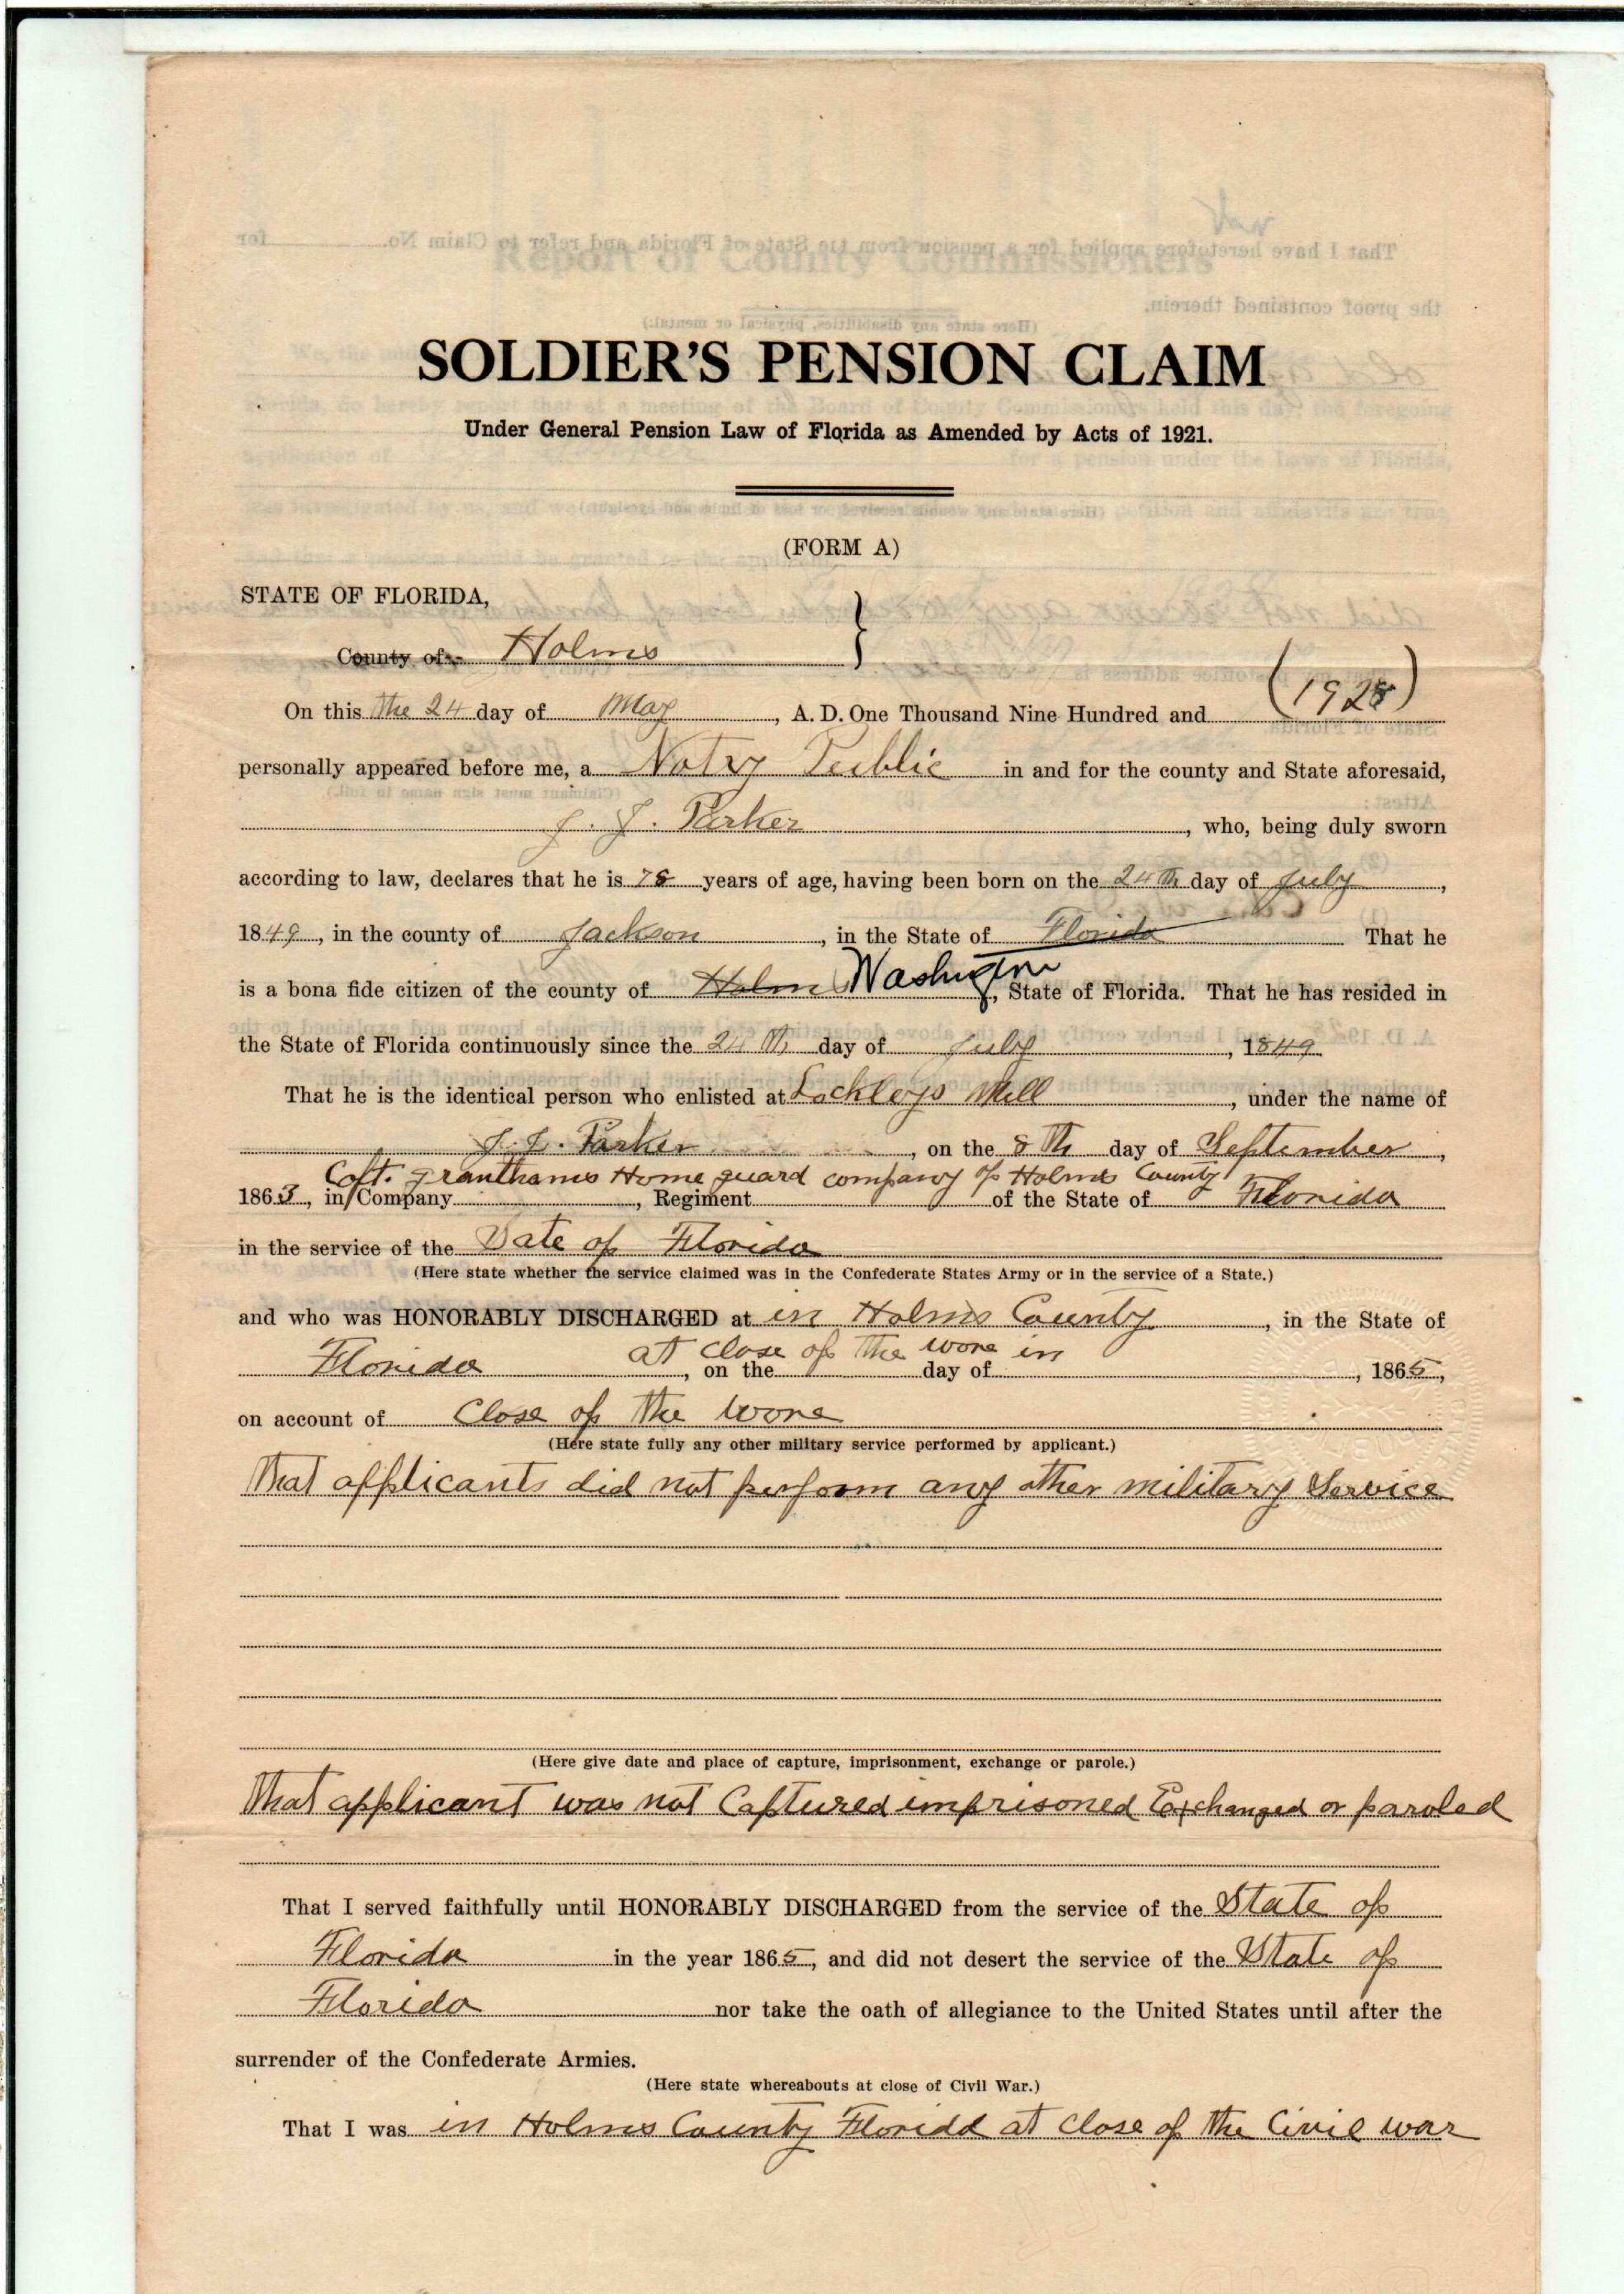 SOLDIER'S PENSION CLAIM
Under General Pension Law of Florida as Amended by Acts of 1921.
(FORM A)
STATE OF FLORIDA,
County of Holms
On this the 24 day of May, A. D. One Thousand Nine Hundred and (1928)
personally appeared before me, a Notry Public in and for the county and State aforesaid,
Parker, who, being duly sworn
according to law, declares that he is 78 years of age, having been born on the 24th day of July,
1849, in the county of Jackson, in the State of Florida That he
is a bona fide citizen of the county of Holms Washington, State of Florida. That he has resided in
the State of Florida continuously since the 24 th day of July, 1849
That he is the identical person who enlisted at Lockleys Mill, under the name of
Parker, on the 8 th day of September,
Capt. Granthams Home guard company of Holms County
1863, in Company, Regiment of the State of Florida
in the service of the State of Florida
(Here state whether the service claimed was in the Confederate States Army or in the service of a State.)
and who was HONORABLY DISCHARGED at in Holms County, in the State of
Florida at close of the wore in, on the day of, 1865,
on account of Close of the wore
(Here state fully any other military service performed by applicant.)
That applicants did not perform any other military Service
(Here give date and place of capture, imprisonment, exchange or parole.)
That applicant was not Captured imprisoned Exchanged or paroled
That I served faithfully until HONORABLY DISCHARGED from the service of the State of
Florida in the year 1865, and did not desert the service of the State of
Florida nor take the oath of allegiance to the United States until after the
surrender of the Confederate Armies.
(Here state whereabouts at close of Civil War.)
That I was in Holms County Florida at close of the Civil war